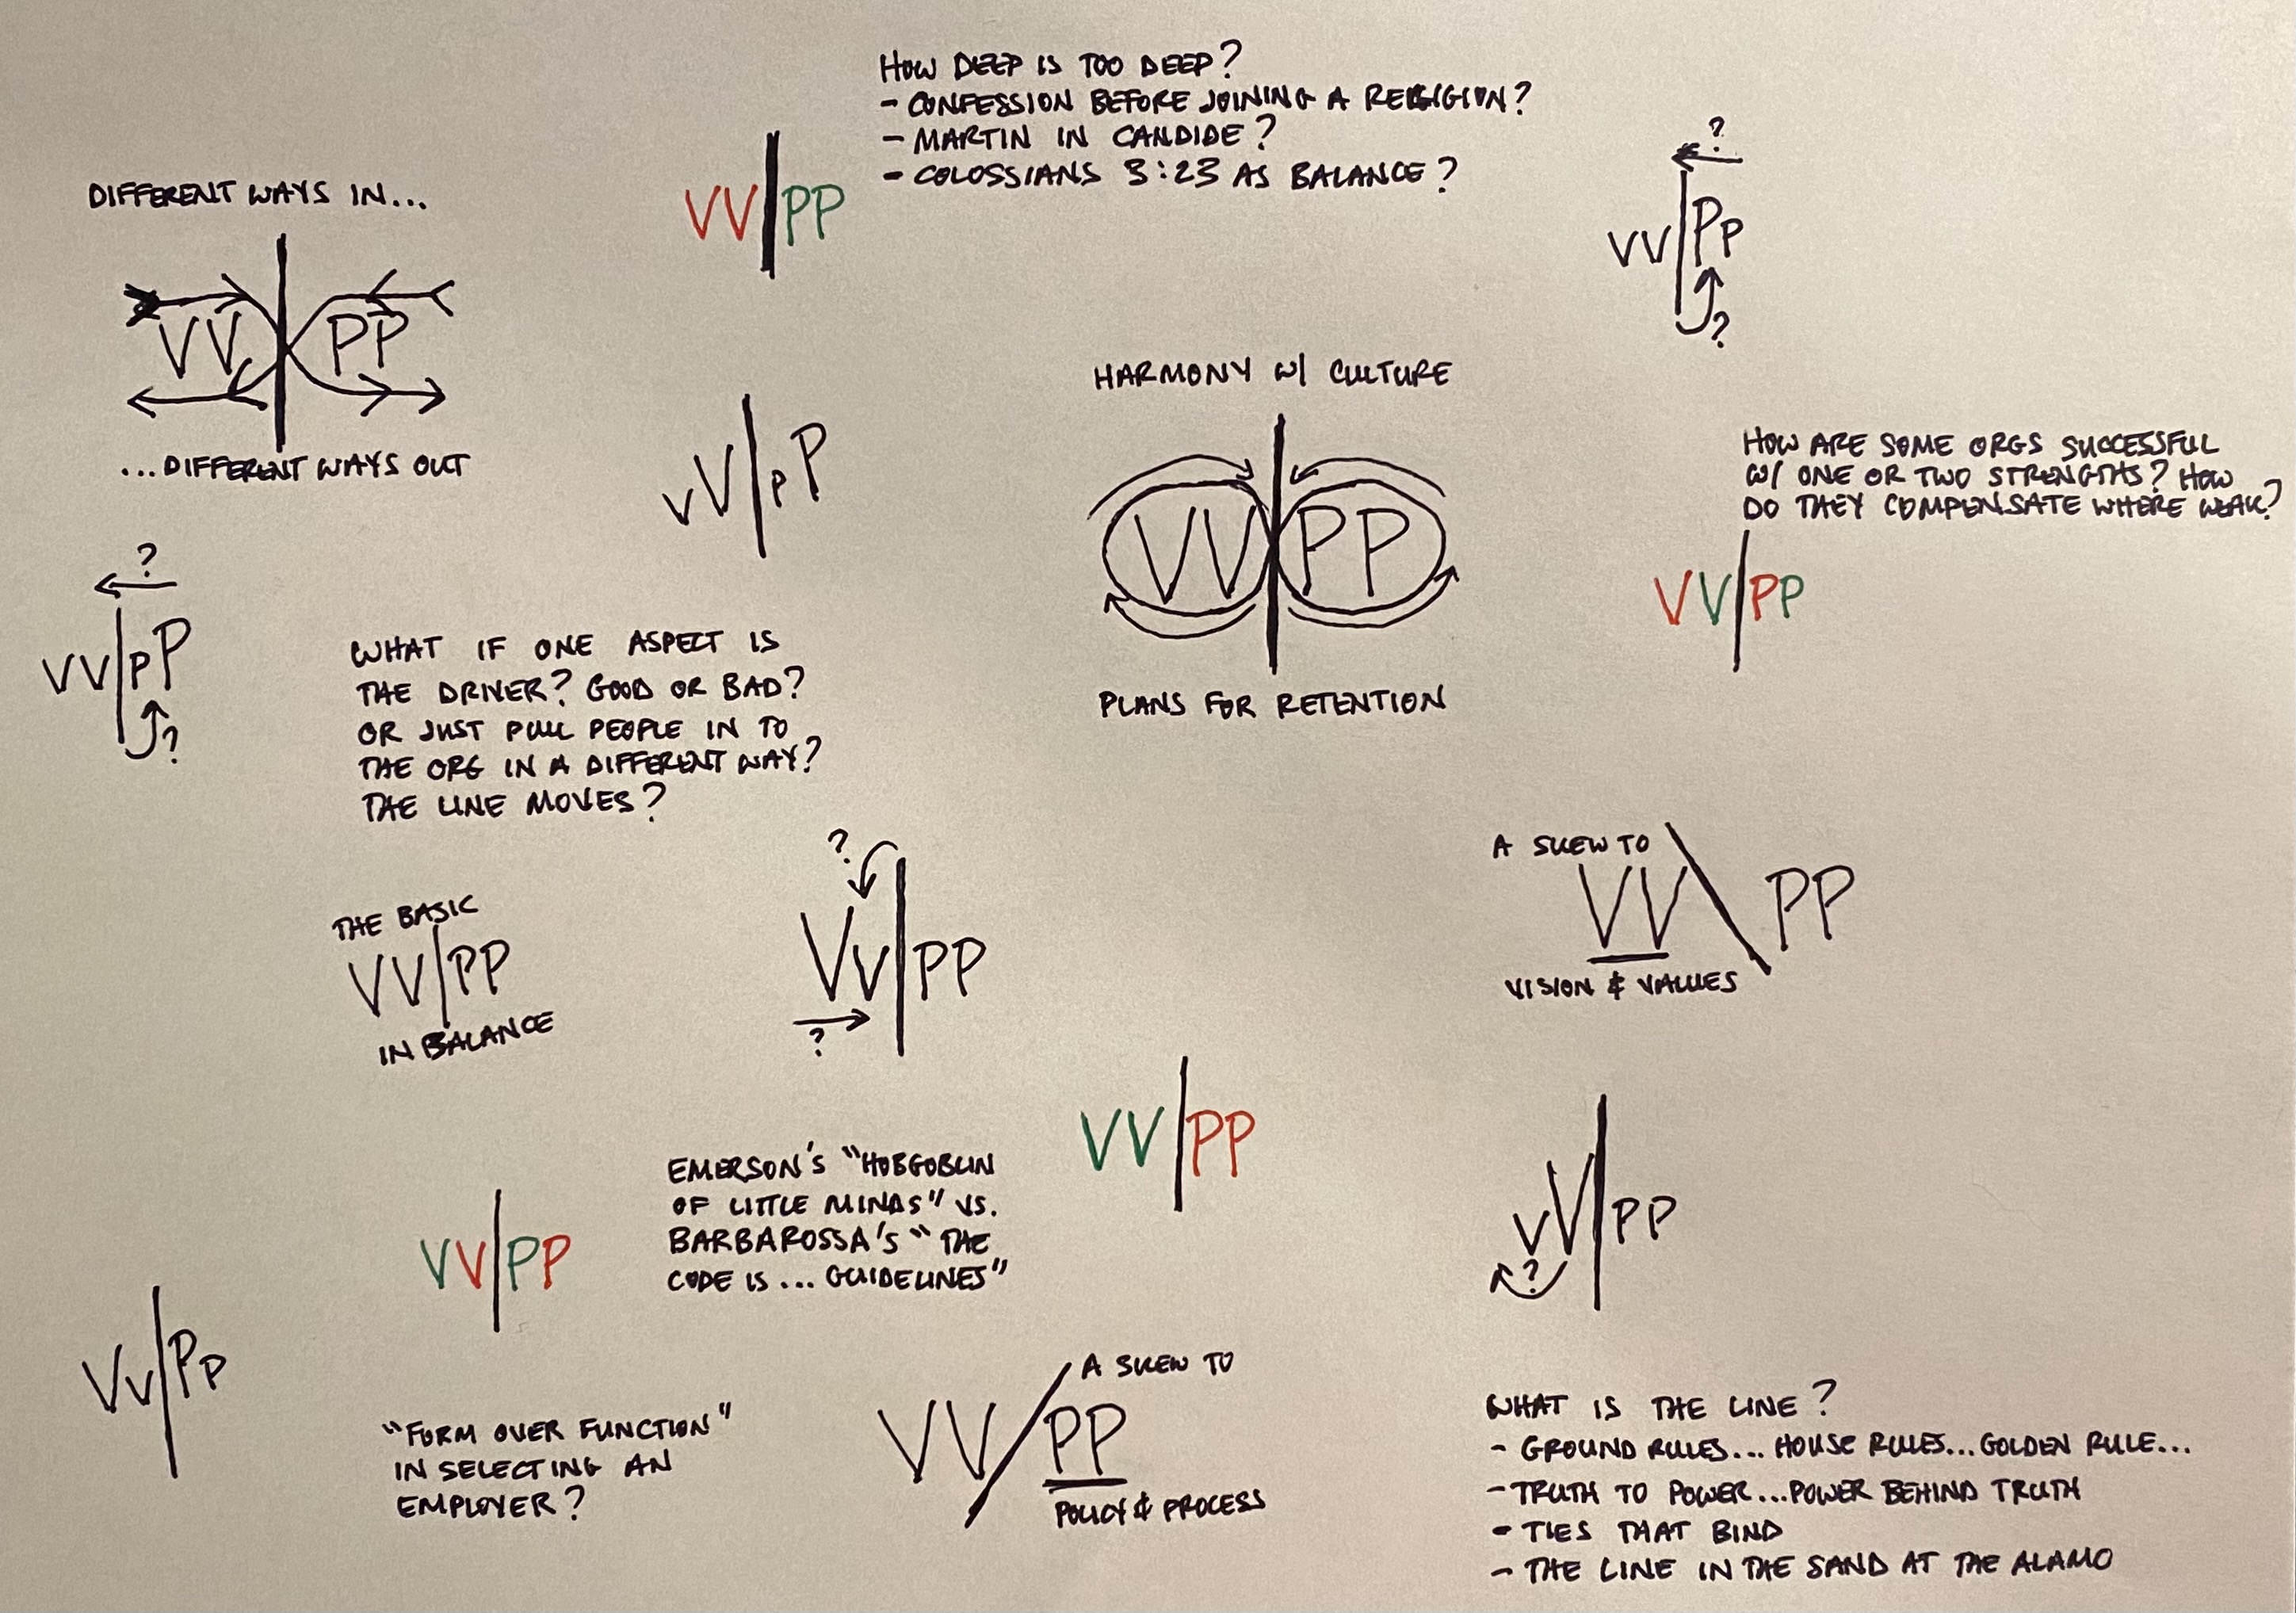 HOW DEEP IS TOO DEEP?
- CONFESSION BEFORE JOINING A RELIGION?
- MARTIN IN CANDIDE?
- COLOSSIANS 3:23 AS BALANCE?
VV|PP
?
VV|Pp
?
DIFFERENT WAYS IN...
VV|PP
...DIFFERENT WAYS OUT
vV|pP
HARMONY W/ CULTURE
VV|PP
PLANS FOR RETENTION
HOW ARE SOME ORGS SUCCESSFUL
W/ ONE OR TWO STRENGTHS? HOW
DO THEY COMPENSATE WHERE WEAK?
VV|PP
?
VV|pP
?
WHAT IF ONE ASPECT IS
THE DRIVER? GOOD OR BAD?
OR JUST PULL PEOPLE IN TO
THE ORG IN A DIFFERENT WAY?
THE LINE MOVES?
THE BASIC
VV|PP
IN BALANCE
?
Vv|PP
?
A SKEW TO
VV\PP
VISION & VALUES
VV|PP
EMERSON'S "HOBGOBLIN
OF LITTLE MINDS" VS.
BARBAROSSA'S "THE
CODE IS... GUIDELINES"
VV|PP
vV|PP
?
Vv|Pp
"FORM OVER FUNCTION"
IN SELECTING AN
EMPLOYER?
A SKEW TO
VV/PP
POLICY & PROCESS
WHAT IS THE LINE?
- GROUND RULES... HOUSE RULES... GOLDEN RULE...
- TRUTH TO POWER... POWER BEHIND TRUTH
- TIES THAT BIND
- THE LINE IN THE SAND AT THE ALAMO